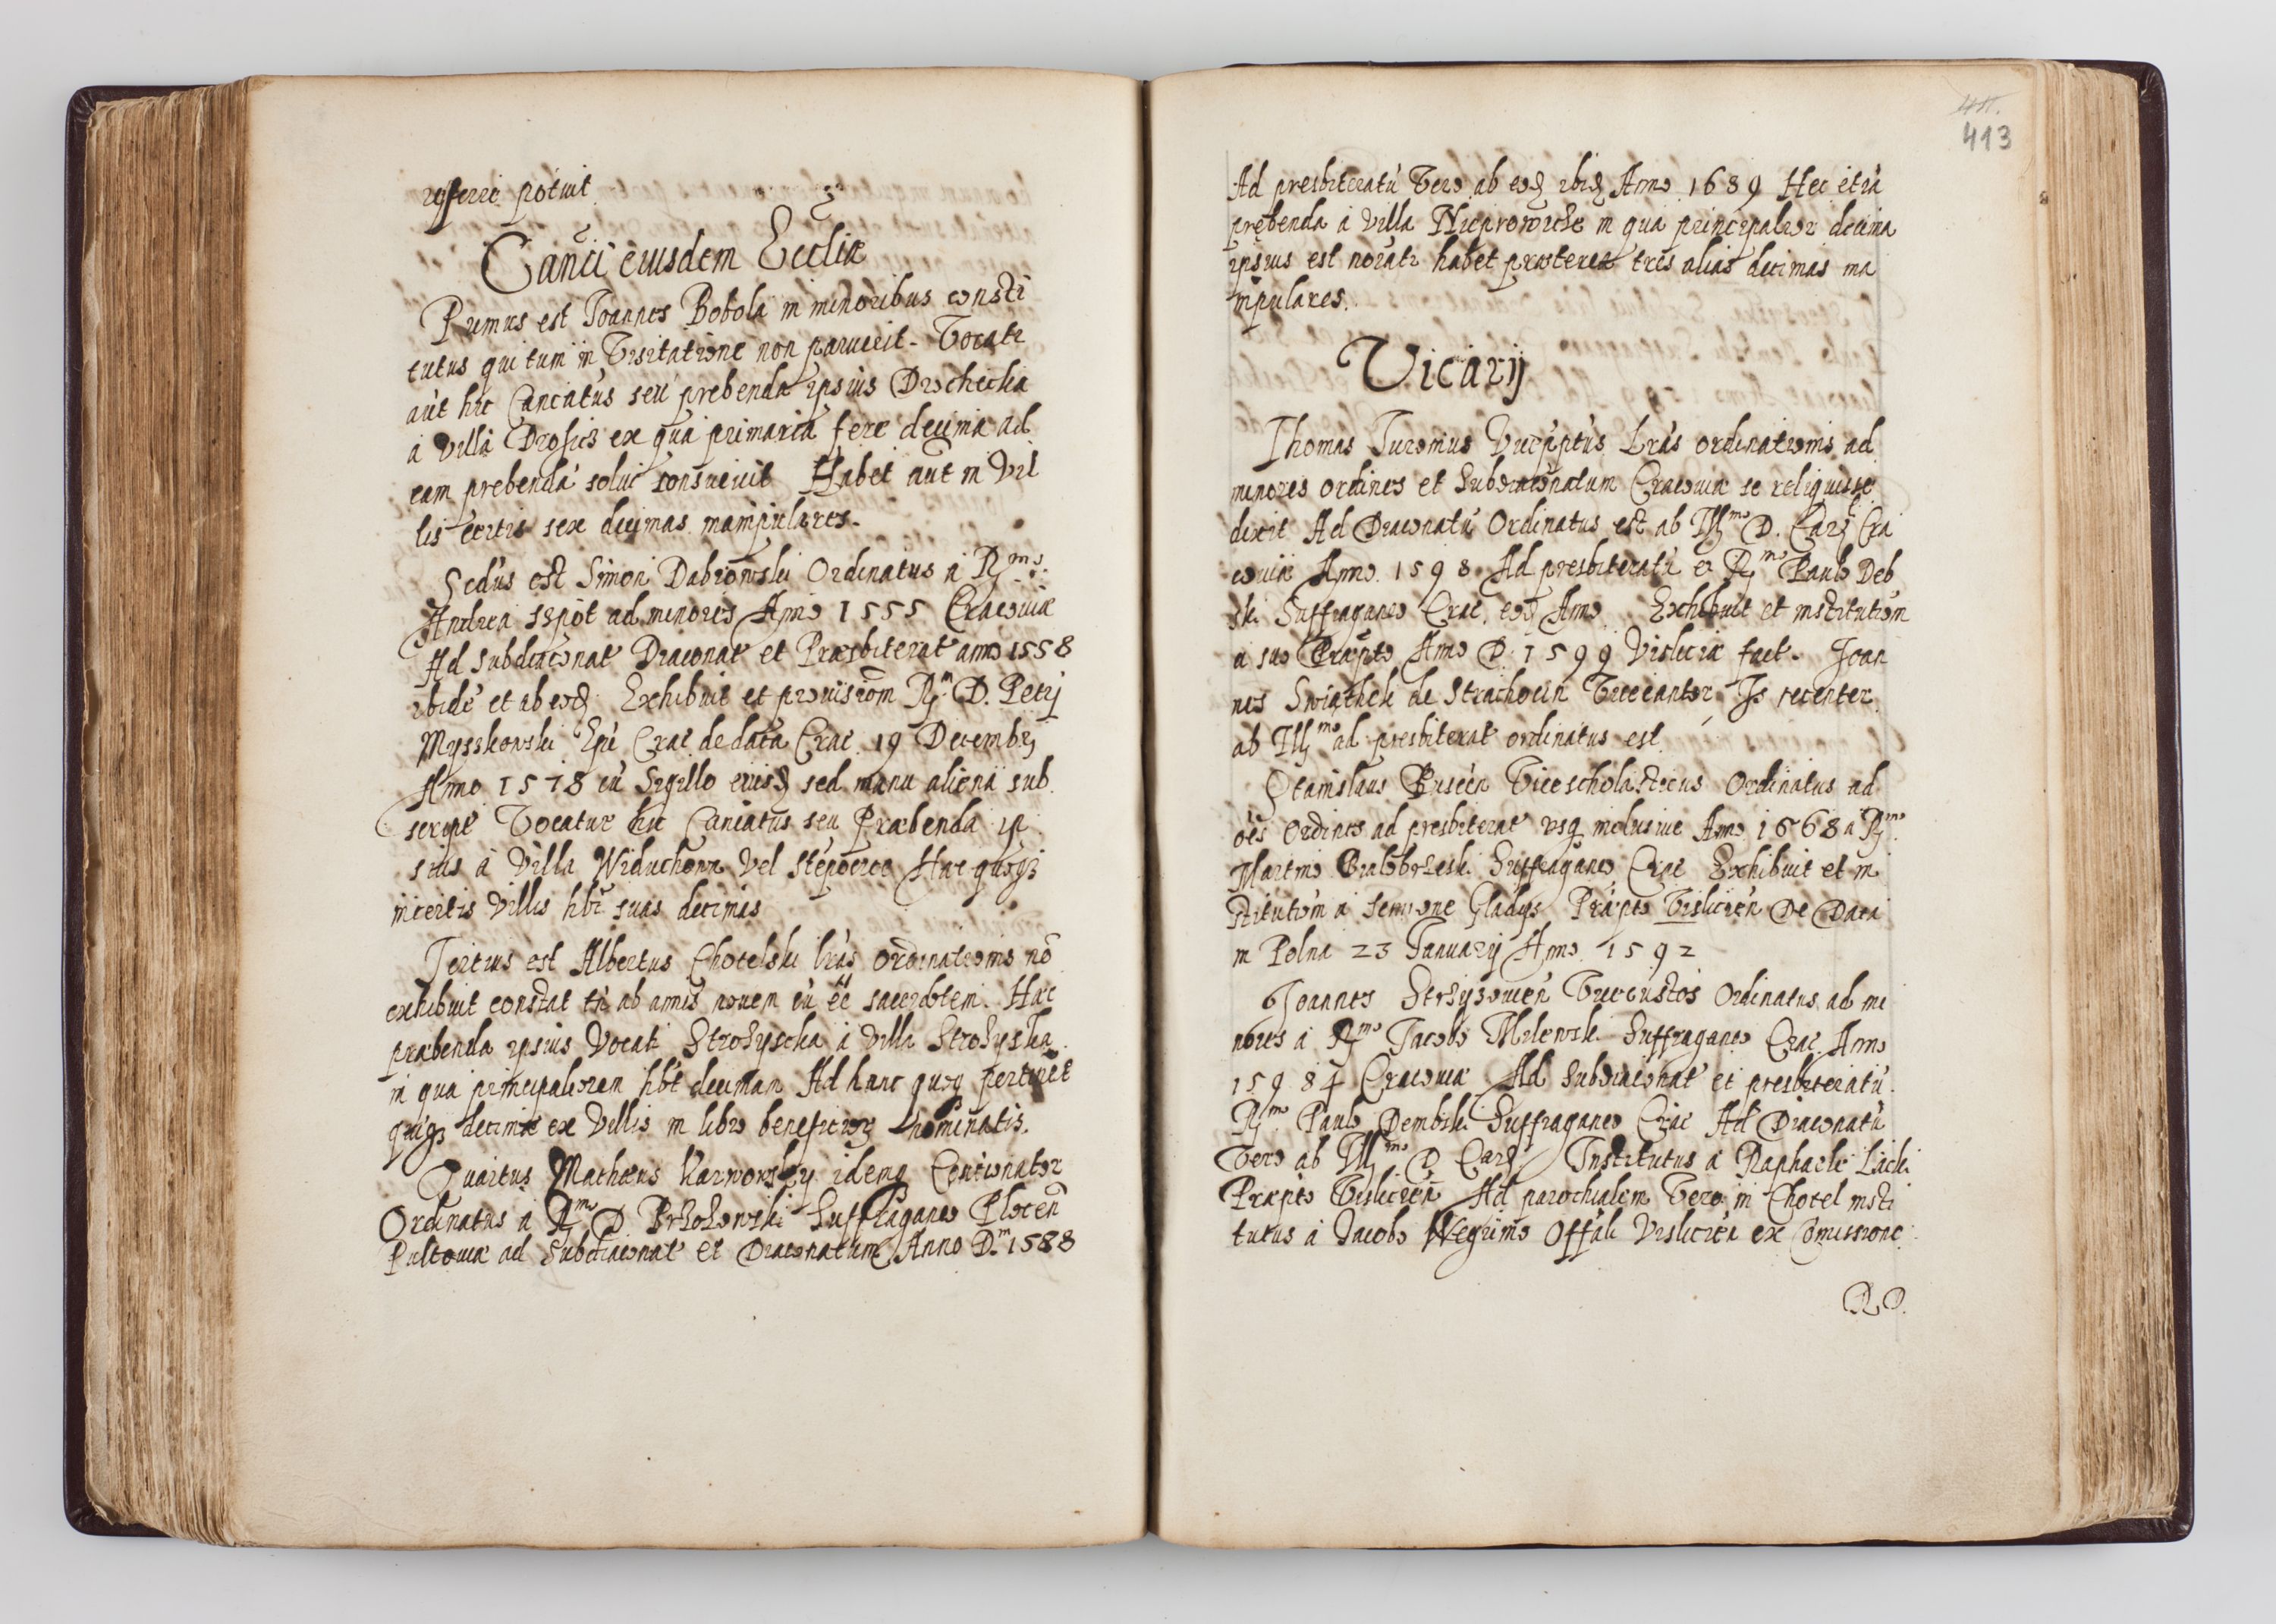 referri potuit
Canci eiusdem Eccliæ
Primus est Joannes Bobola in minoribus consti
tutus qui tum in Visitatione non paruerit. Vocatr
aut hic Canẽatus seu prebenda ipsius Droschecka
à villa ex qua primaria fere decima ad
eam prebendã solui consueuit Habet aut in Vil
lis certis sex decimas manipulares.
Scdus est Simon Dabrowski Ordinatus à Rmo.
Andrea Szpot ad minores Ano 1555 Cracoviæ
Ad subdiaconat Diaconat et Præsbiterat anno 1558
ibidẽ et ab eod Exhibuit et prouisiom Rm D. Petrj
Mysskowski Epi Crac de data Crac. 19 Decembrs
Anno 1578 cũ Sigillo eiusd sed manu aliena sub
script Vocatur hic Canẽatus seu Præbenda ip
sius à Villa Widuchowa Vel Stepocice Hæc quoq3
incertis Villis hbt suas decimas
Tertius est Albertus Chotelski lras ordinationis nõ
exhibuit constat tñ ab annis nouem eũ eẽ sacerdotem. Hæc
præbenda ipsius Vocatr Strożyscka à Villa Strożyska
in qua principaliorem hbt decimam Ad hanc quoq pertinẽt
quinq3 decimæ ex Villis in libro beneficiorz nominatis.
Quartus Mathæus Karwowsky idemq Contionator
Ordinatus à Rmo D Brzozowski Suffraganeo Plocen
Pultouiæ ad Subdiaconat et Diaconatum Anno Dm 1588
413
Ad presbiteratũ Vero ab eod ibid Anno 1689 Hec etiã
prębenda à Villa Nieprowicke in qua principalior decima
ipsius est vocatr habet præterea tres alias decimas ma
nipulares.
Vicarij
Thomas Vicepptus Lras ordinationis ad
minores ordines et Subdiaconatum Cracoviæ se reliquisse
dixit Ad Diaconatũ Ordinatus est ab Illmo D. Card Cra
coviæ Anno 1598 Ad presbiteratũ a Rmo Paulo Deb
ski Suffraganeo Crac. eod Anno Exhibuit et institutiom
a suo Præpto Anno D. 1599 Visliciæ fact. Joan
nes Swiathek de Strachocin Vicecantor Js recenter
ab Illmo ad presbiterat ordinatus est.
Stanislaus Busceń Vicescholasticus Ordinatus ad
oẽs Ordines ad presbiterat vsq inclusiue Anno 1568 a Rmo
Martino Bialobrzeski Suffraganeo Crac Exhibuit et in
stitutiom à Gladys Præpto Vislicieñ De Data
in Polna 23 Januarij Anno 1592
Joannes Vicecustos Ordinatus ad mi
nores à Rmo Jacobo Milewski Suffraganeo Crac Anno
159 84 Cracoviæ Ad Subdiaconat et presbiteratũ
Rmo Paulo Dembski Suffraganeo Crac Ad Diaconatũ
Vero ab Illmo D Card. Institutus à Raphaele Lącki
Præpto Vislicieñ Ad parochialem Vero in Chotel insti
tutus à Jacobo Wegrino Offāli Vislicieñ ex Cõmissione
R D.